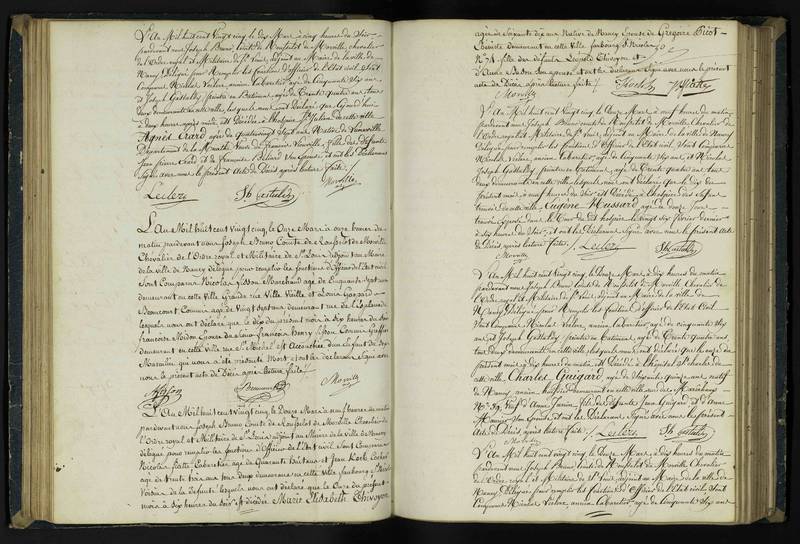 L'An Mil huit cent vingt cinq le dix Mars à cinq heures du Soir
pardevant nous Joseph Bruno Comte de
l'Ordre royal et Militaire de St. Louis, adjoint au Maire de la ville de
Nancy délégué pour remplir les fonctions d'officier de l'Etat civil, Sont
Comparus Nicolas Leclerc, ancien Cabaretier âgé de Cinquante Six ans
et Joseph Gastaldy, peintre en Batiment, âgé de Trente quatre ans tous
deux demeurants en cette ville, lesquels nous ont déclaré que
à deux heures après midi est décédée à l'hospice St. Julien de cette ville
Agnès Erard âgée de quatrevingt Sept ans Native de
Département de la Meurthe Veuve de François fille des défunts
Jean pierre Erard et de Françoise son Epouse et ont les Déclarans
Signé avec nous le présent Acte de Décès après lecture faite.
Leclerc Jh Gastaldy Morville
L'An Mil huit cent vingt cinq, le Onze Mars à onze heures du
matin pardevant nous Joseph Bruno Comte de de Morville
Chevalier de l'Ordre royal et Militaire de St. Louis adjoint au Maire
de la ville de Nancy délégué pour remplir les fonctions d'officier de l'Etat civil
Sont Comparus Nicolas Husson Marchand âgé de Cinquante Sept ans
demeurant en cette Ville Grande rue Ville Vieille et Louis Gaspard
Beaucourt Commis âgé de Vingt Sept ans demeurant rue de l'Esplanade
lesquels nous ont déclaré que le dix du présent mois à dix heures du Soir
Françoise Epouse du Sieur François Henry Husson Commis Greffier
demeurant en cette Ville rue St. Michel est Accouchée d'un Enfant du Sexe
Masculin qui nous a été présenté Mort et ont les déclarans Signé avec
nous le présent acte de Décès après lecture faite.
Husson Beaucourt Morville
L'An Mil huit cent vingt cinq, le Douze Mars à neuf heures du matin
pardevant nous Joseph Bruno Comte de de Morville Chevalier de
l'Ordre royal et Militaire de St. Louis adjoint au Maire de la Ville de Nancy
délégué pour remplir les fonctions d'Officier de l'Etat civil Sont Comparus
Nicolas Cabaretier âgé de Quarante Huit ans et Jean Cocher
âgé de trente trois ans tous deux demeurans en cette Ville faubourg St. Nicolas
Voisins de la défunte lesquels nous ont déclaré que le Onze du présent
mois à dix heures du Soir est décédée Marie Elisabeth Thouvenin
âgée de Soixante dix ans Native de Nancy Epouse de Grégoire
demeurant en cette Ville faubourg St. Nicolas
No. 74 fille des défunts Léopold Thouvenin et
d'Anne son épouse et ont les déclarans Signé avec nous le présent
acte de Décès après lecture faite.
Morville
L'An Mil huit cent vingt cinq, le Douze Mars à neuf heures du matin
pardevant nous Joseph Bruno Comte de de Morville Chevalier de
l'Ordre royal et Militaire de St. Louis, adjoint au Maire de la ville de Nancy
délégué pour remplir les fonctions d'Officier de l'Etat civil, Sont Comparus
Nicolas Leclerc, ancien Cabaretier, âgé de Cinquante Six ans, et
Joseph Gastaldy, peintre en Batiment, âgé de Trente quatre ans tous
deux demeurants en cette ville, lesquels nous ont déclaré que le dix du
présent mois à neuf heures du Soir est Décédé à l'hospice des Enfans
trouvés de cette ville Eugène Hussard âgé de
trouvé exposé dans le Tour du dit hospice le vingt six février dernier
à dix heures du Soir, et ont les Déclarans Signé avec nous le présent Acte
de Décès après lecture faite. Leclerc Jh Gastaldy
Morville
L'An Mil huit cent vingt cinq, le Douze Mars à dix heures du matin
pardevant nous Joseph Bruno Comte de de Morville Chevalier de
l'Ordre royal et Militaire de St. Louis, adjoint au Maire de la ville de
Nancy délégué pour remplir les fonctions d'Officier de l'Etat Civil
Sont Comparus Nicolas Leclerc, ancien Cabaretier âgé de cinquante Six
ans et Joseph Gastaldy peintre en Batiment, âgé de Trente quatre ans
tous deux demeurants en cette ville, lesquels nous ont déclaré que le onze du
présent mois à dix heures du matin, est Décédé à l'hôpital St. Charles de
cette ville, Charles Guigard, âgé de Soixante quinze ans natif
de Nancy, ancien demeurant en cette ville rue des Maréchaux
No. 39, Veuf d'Anne fils des défunts Jean Guigard et d'Anne
son Epouse, et ont les Déclarans Signé avec nous le présent
Acte de Décès après lecture faite. Leclerc Jh Gastaldy
Morville
L'An Mil huit cent vingt cinq, le Douze Mars, à dix heures du matin
pardevant nous Joseph Bruno Comte de de Morville Chevalier
de l'Ordre royal et Militaire de St. Louis, adjoint au Maire de la ville de
Nancy délégué pour remplir les fonctions d'Officier de l'Etat civil Sont
Comparus Nicolas Leclerc, ancien Cabaretier, âgé de Cinquante Six ans